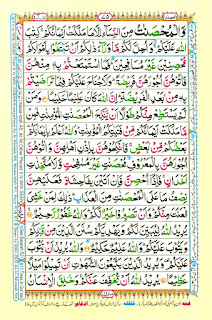 وَّالْمُحْصَنٰتُ مِنَ النِّسَآءِ اِلَّا مَا مَلَكَتْ اَيْمَانُكُمْ ۚ كِتٰبَ
اللّٰهِ عَلَيْكُمْ ۚ وَاُحِلَّ لَكُمْ مَّا وَرَآءَ ذٰلِكُمْ اَنْ تَبْتَغُوْا بِاَمْوَالِكُمْ
مُّحْصِنِيْنَ غَيْرَ مُسٰفِحِيْنَ ؕ فَمَا اسْتَمْتَعْتُمْ بِهٖ مِنْهُنَّ
فَاٰتُوْهُنَّ اُجُوْرَهُنَّ فَرِيْضَةً ؕ وَلَا جُنَاحَ عَلَيْكُمْ فِيْمَا تَرٰضَيْتُمْ
بِهٖ مِنْۢ بَعْدِ الْفَرِيْضَةِ ؕ اِنَّ اللّٰهَ كَانَ عَلِيْمًا حَكِيْمًا وَمَنْ
لَّمْ يَسْتَطِعْ مِنْكُمْ طَوْلًا اَنْ يَّنْكِحَ الْمُحْصَنٰتِ الْمُؤْمِنٰتِ فَمِنْ
مَّا مَلَكَتْ اَيْمَانُكُمْ مِّنْ فَتَيٰتِكُمُ الْمُؤْمِنٰتِ ؕ وَاللّٰهُ اَعْلَمُ بِاِيْمَانِكُمْ ؕ
بَعْضُكُمْ مِّنْۢ بَعْضٍ ۚ فَانْكِحُوْهُنَّ بِاِذْنِ اَهْلِهِنَّ وَاٰتُوْهُنَّ
اُجُوْرَهُنَّ بِالْمَعْرُوْفِ مُحْصَنٰتٍ غَيْرَ مُسٰفِحٰتٍ وَّلَا مُتَّخِذٰتِ
اَخْدَانٍ ۚ فَاِذَآ اُحْصِنَّ فَاِنْ اَتَيْنَ بِفَاحِشَةٍ فَعَلَيْهِنَّ
نِصْفُ مَا عَلَى الْمُحْصَنٰتِ مِنَ الْعَذَابِ ؕ ذٰلِكَ لِمَنْ خَشِيَ
الْعَنَتَ مِنْكُمْ ؕ وَاَنْ تَصْبِرُوْا خَيْرٌ لَّكُمْ ؕ وَاللّٰهُ غَفُوْرٌ رَّحِيْمٌ
يُرِيْدُ اللّٰهُ لِيُبَيِّنَ لَكُمْ وَيَهْدِيَكُمْ سُنَنَ الَّذِيْنَ مِنْ قَبْلِكُمْ
وَيَتُوْبَ عَلَيْكُمْ ؕ وَاللّٰهُ عَلِيْمٌ حَكِيْمٌ وَاللّٰهُ يُرِيْدُ اَنْ يَّتُوْبَ
عَلَيْكُمْ وَيُرِيْدُ الَّذِيْنَ يَتَّبِعُوْنَ الشَّهَوٰتِ اَنْ تَمِيْلُوْا مَيْلًا
عَظِيْمًا يُرِيْدُ اللّٰهُ اَنْ يُّخَفِّفَ عَنْكُمْ ۚ وَخُلِقَ الْاِنْسَانُ